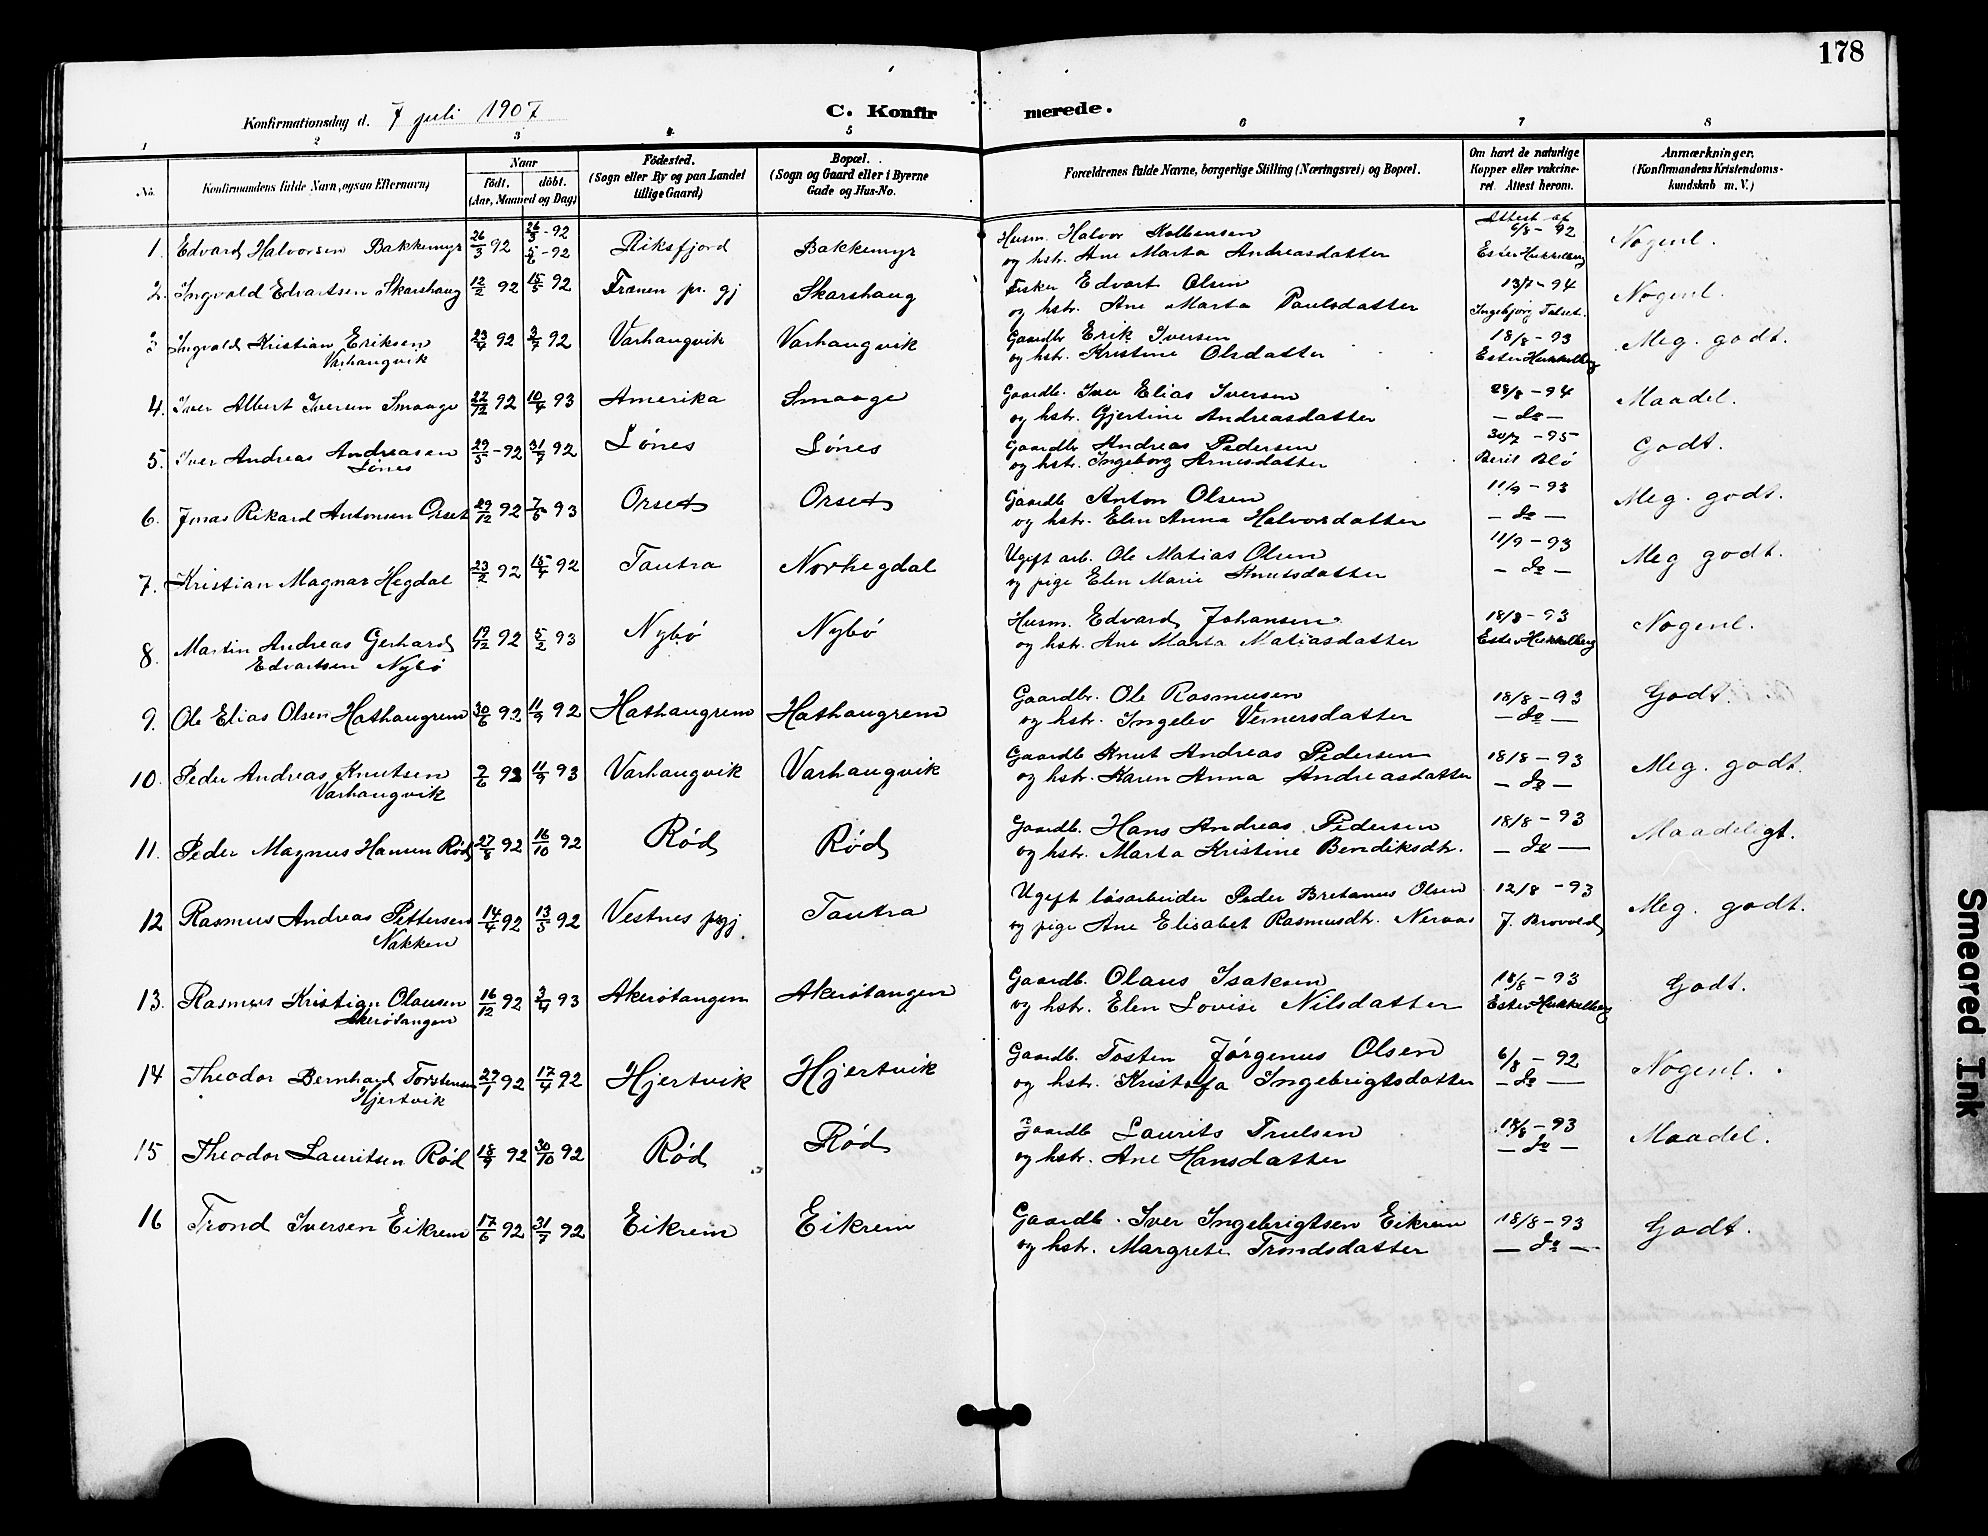 178
Konfirmationsdag d. 7 juli 1907
C. Konfirmerede.
1 2 3 4 5 6 7 8
No. Konfirmandens fulde Navn, ogsaa Efternavn)
Naar
födt. döbt.
(Aar, Maaned og Dag)
Födested.
(Sogn eller By og paa Landet
tillige Gaard)
Bopæl.
(Sogn og Gaard eller i Byerne
Gade og Hus-No.
Forældrenes fulde Navne, borgerlige Stilling (Næringsvei) og Bopæl.
Om havt de naturlige
Kopper eller vakcine-
ret. Attest herom.
Anmærkninger.
(Konfirmandens Kristendoms-
kundskab m. V.)
1. Edvard Halvorsen Bakkemyr 26/3 92 26/3-92 5/6-92 Riksfjord Bakkemyr Husm. Halvor Kolbensen Attest af 6/8-92 Nogenl.
og hstr. Ane Marta Andreasdatter Ester Hukkelberg
2. Ingvald Edvartsen Skarshaug 12/2 92 15/5 92 Frænen pr. gj Skarshaug Fisker Edvart Olsen 13/7-94 Nogenl.
og hstr. Ane Marta Paulsdatter Ingebjörg Talset.
3 Ingvald Kristian Eriksen 23/4 92 3/7 92 Varhaugvik Varhaugvik Gaardbr Erik Iversen 18/8-93 Meg. godt.
Varhaugvik og hstr. Kristine Olsdatter Ester Hukkelberg
4. Iver Albert Iversen Smaage 22/12 92 10/4 93 Amerika Smaage Gaardb. Iver Elias Iversen 28/8-94 Maadel.
og hstr. Gjertine Andreasdatter — do —
5. Iver Andreas Andreasen 29/5-92 31/7 92 Lönes Lönes Gaardbr Andreas Pedersen 30/7-95 Godt.
Lönes og hstr. Ingeborg Arnesdatter Berit Blö
6. Jonas Rikard Antonsen Orset 29/12 92 7/5 93 Orset Orset Gaardb Anton Olsen 11/9-93 Meg. godt.
og hstr. Elen Anna Halvorsdatter — do —
7. Kristian Magnar Hegdal 23/2 92 15/4 92 Tautra Norhegdal Ugift arb. Ole Matias Olsen 11/9-93 Meg godt.
og pige Elen Marie Knutsdatter — do —
8. Martin Andreas Gerhard 19/12 92 5/2 93 Nybö Nybö Husm. Edvard Johansen 18/8-93 Nogenl.
Edvartsen Nybö og hstr. Ane Marta Matiasdatter Ester Hukkelberg
9. Ole Elias Olsen Hathaugrem 30/6 92 11/9 92 Hathaugrem Hathaugrem Gaardbr. Ole Rasmusen 18/8-93 Godt.
og hstr. Ingelev Vernersdatter — do —
10. Peder Andreas Knutsen 9/6 92 11/9 93 Varhaugvik Varhaugvik Gaardb Knut Andreas Pedersen 18/8-93 Meg. godt.
Varhaugvik og hstr. Karen Anna Andreasdatter — do —
11. Peder Magnus Hansen Röd 27/8 92 16/10 92 Röd Röd Gaardb. Hans Andreas Pedersen 18/8-93 Maadeligt.
og hstr. Marta Kristine Bendiksdtr. — do —
12 Rasmus Andreas Pettersen 14/4 92 13/5 92 Vestnes prgj Tautra Ugift lösarbeider Peder Bretanus Olsen 12/8-93 Meg. godt.
Nakken og pige Ane Elisabet Rasmusdtr. Neraas J. Brovold
13. Rasmus Kristian Olausen 16/12 92 3/4 93 Akerötangen Akerötangen Gaardb. Olaus Isaksen 18/8-93 Godt.
Akerötangen og hstr. Elen Lovise Nilsdatter Ester Hukkelberg
14 Theodor Bernhard Torstensen 29/1 92 17/4 92 Hjertvik Hjertvik Gaardb. Tosten Jörgenus Olsen 6/8-92 Nogenl.
Hjertvik og hstr. Kristofa Ingebrigtsdatter — do —
15 Theodor Lauritsen Röd 18/9 92 30/10 92 Röd Röd Gaardb Laurits Trulsen 18/8-93 Maadel.
og hstr. Ane Hansdatter — do —
16 Trond Iversen Eikrem 17/6 92 31/7 92 Eikrem Eikrem Gaardb. Iver Ingebrigtsen Eikrem 18/8-93 Godt.
og hstr. Margrete Trondsdatter — do —
Smeared Ink